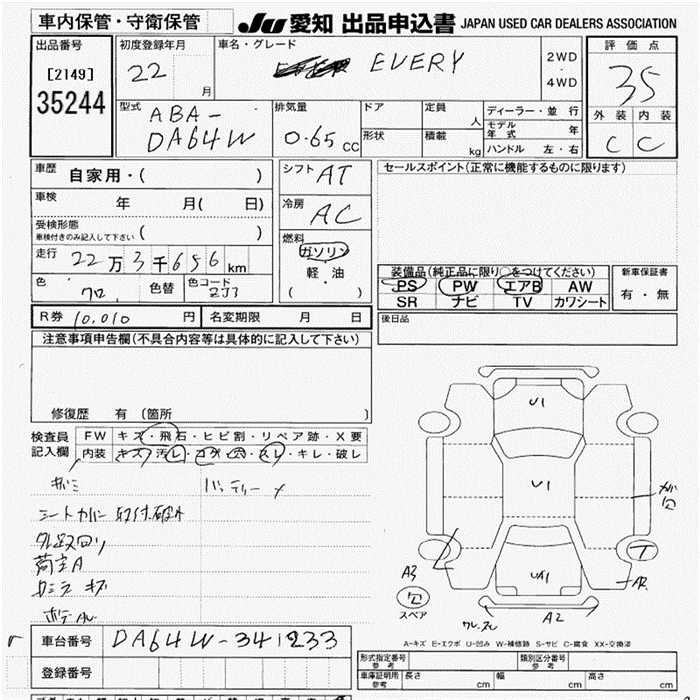 車内保管・守衛保管
JU 愛知 出品申込書 JAPAN USED CAR DEALERS ASSOCIATION
出品番号
[2149]
35244
初度登録年月
22 月
車名・グレード
EVERY
2WD
・
4WD
評価点
35
外装 内装
C C
型式
ABA-
DA64W
排気量
0.65 CC
ドア
形状
定員
人
積載
kg
ディーラー・並行
モデル
年式 年
ハンドル 左・右
車歴
自家用・( )
車検 年 月( 日)
受検形態
車検付きのみ記入して下さい ( )
走行 22万3千656 km
色 クロ 色替 色コード ZJ3
シフト AT
冷房 AC
燃料
ガソリン
軽・油
( )
セールスポイント(正常に機能するものに限ります)
装備品(純正品に限り○をつけてください)
PS PW エアB AW
SR ナビ TV カワシート
新車保証書
有・無
後日品
R券 10,010 円 名変期限 月 日
注意事項申告欄(不具合内容等は具体的に記入して下さい)
修復歴 有 (箇所 )
検査員
記入欄
FW キズ・飛石・ヒビ割・リペア跡・X要
内装 キズ・汚レ・コゲ・穴・スレ・キレ・破レ
シートカバー 取付破れ
荷室A
キズ
U1
U1
A3
A2
スペア
A-キズ E-エクボ U-凹み W-補修跡 S-サビ C-腐食 XX-交換済
車台番号 DA64W-341233
登録番号
形式指定番号
参考
類別区分番号
参考
車庫証明用
参考
長さ cm 幅 cm 高さ cm